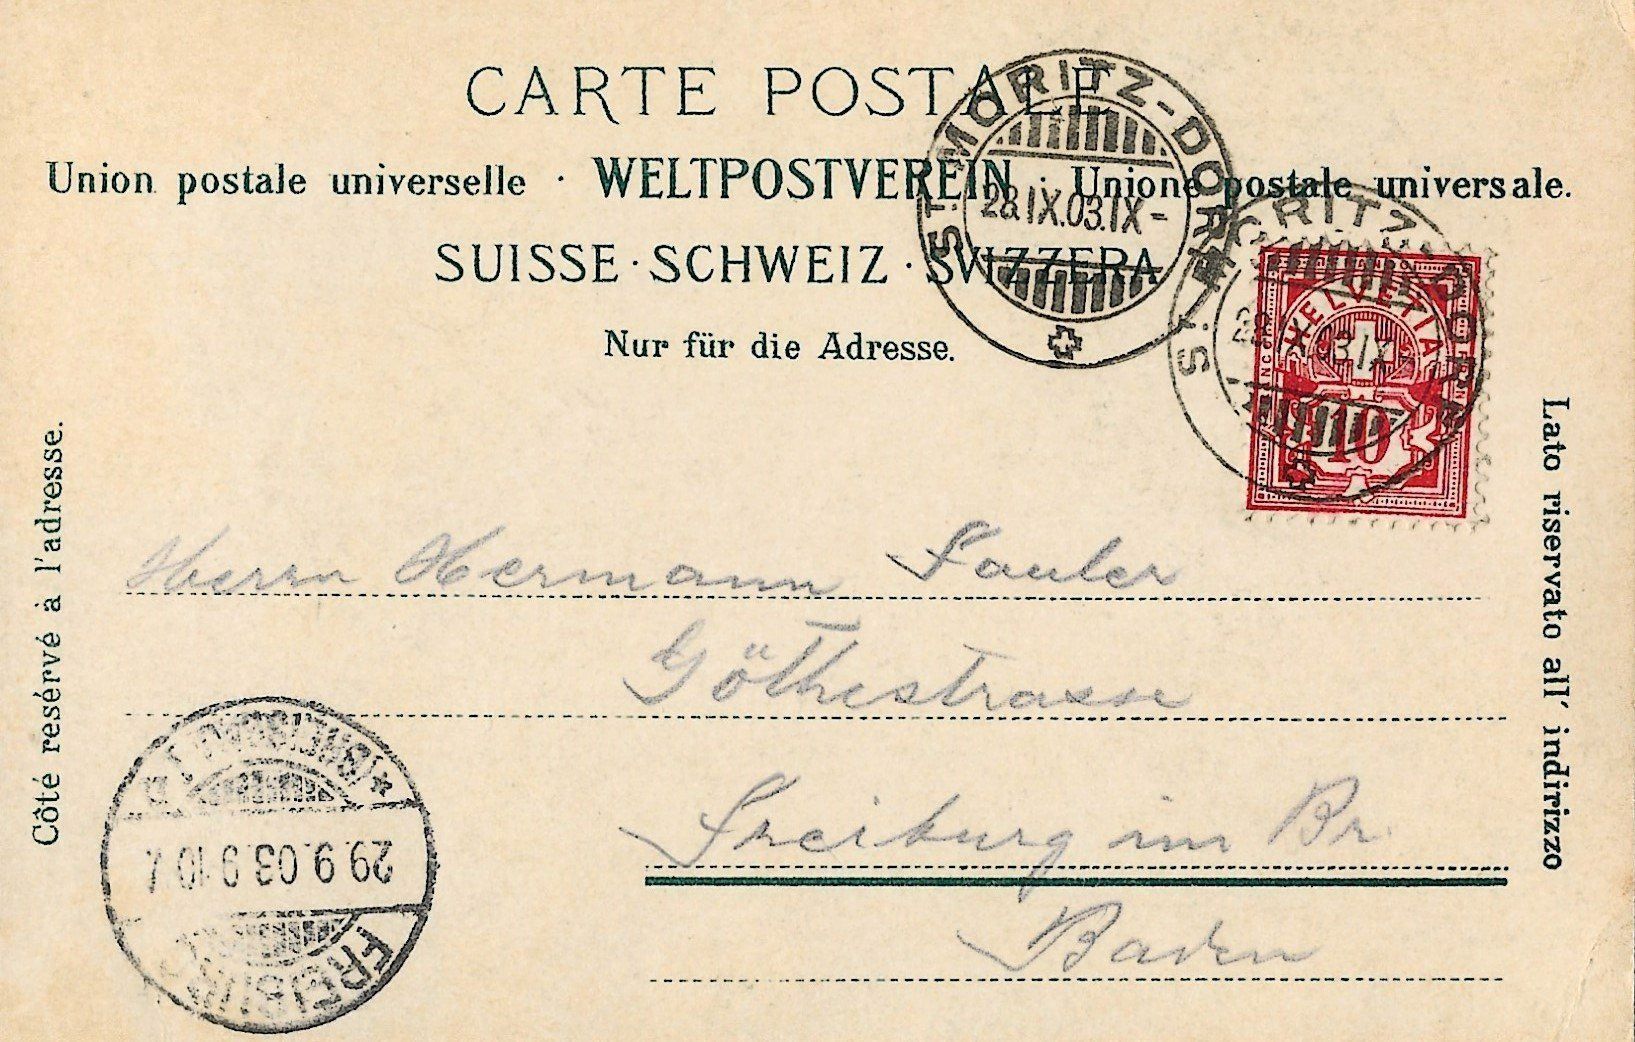 CARTE POSTALE
Union postale universelle · WELTPOSTVEREIN · Unione postale universale.
SUISSE · SCHWEIZ · SVIZZERA
Nur für die Adresse.
ST. MORITZ-DORF
28.IX.03.IX-
ST. MORITZ-DORF
HELVETIA
10
Côté resérvé à l'adresse.
Lato riservato all' indirizzo
Herrn Hermann Sauler
Göthestrasse
Freiburg im Br.
Baden
FREIBURG
29.9.03.9-10
* (BREISGAU) 1